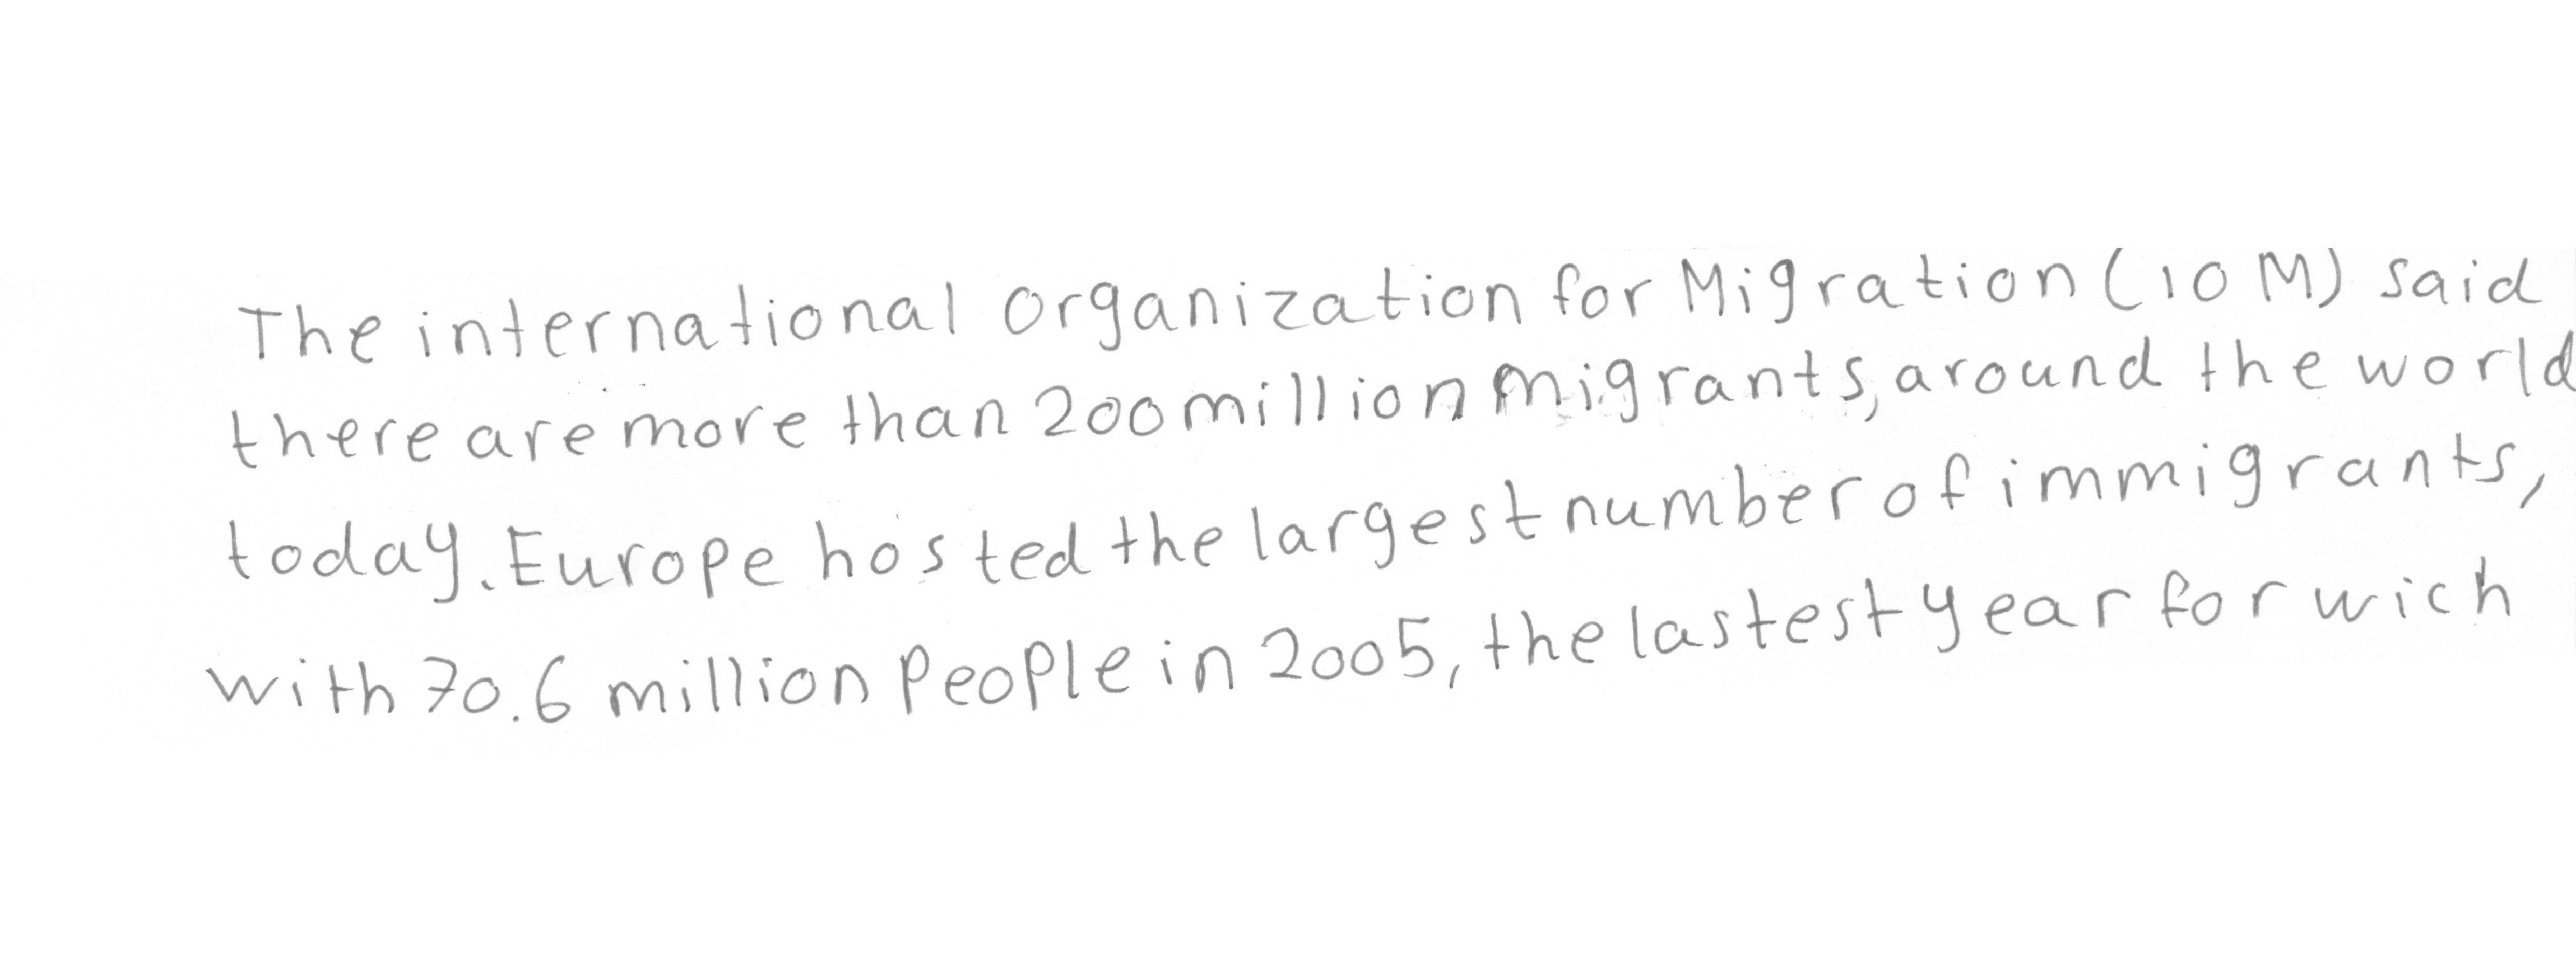 The international organization for Migration (IOM) said
there are more than 200 million migrants, around the world
today. Europe hosted the largest number of immigrants,
with 70.6 million people in 2005, the lastest year for wich